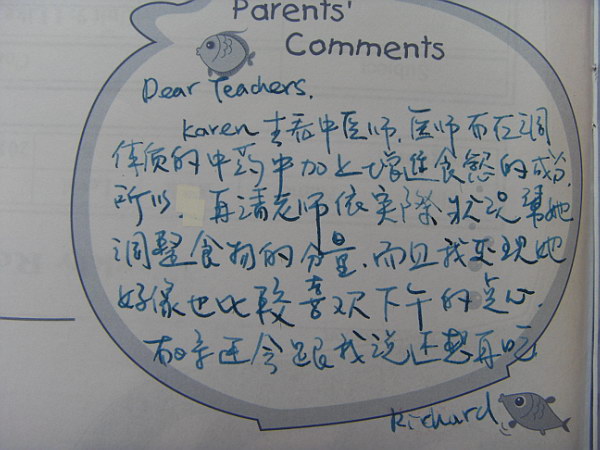 Parents'
Comments
Dear Teachers,
Karen 去看中医师,医师有在调
体质的中药中加上增进食慾的成分,
所以,再请老师依实际状况帮她
调整食物的分量.而且我发现她
好像也比較喜欢下午的点心.
有时还会跟我说还想再吃
Richard